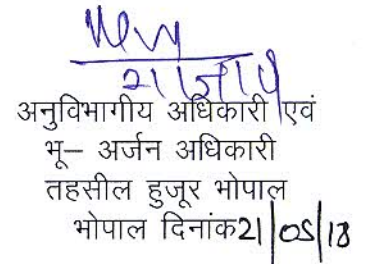 अनुविभागीय अधिकारी एवं
भू– अर्जन अधिकारी
तहसील हुजूर भोपाल
भोपाल दिनांक21/05/18